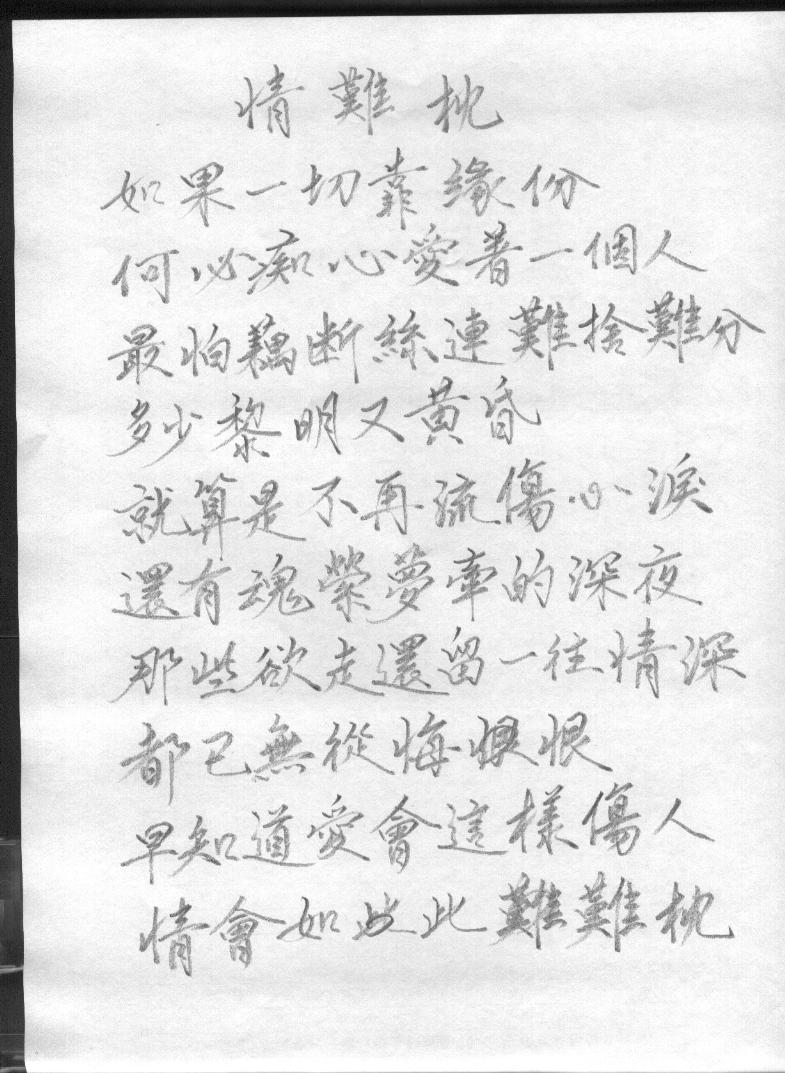 情難枕
如果一切靠緣份
何必痴心愛着一個人
最怕藕断絲連難捨難分
多少黎明又黄昏
就算是不再流傷心淚
還有魂縈夢牽的深夜
那些欲走還留一往情深
都已無從悔恨
早知道愛會這樣傷人
情會如此難難枕